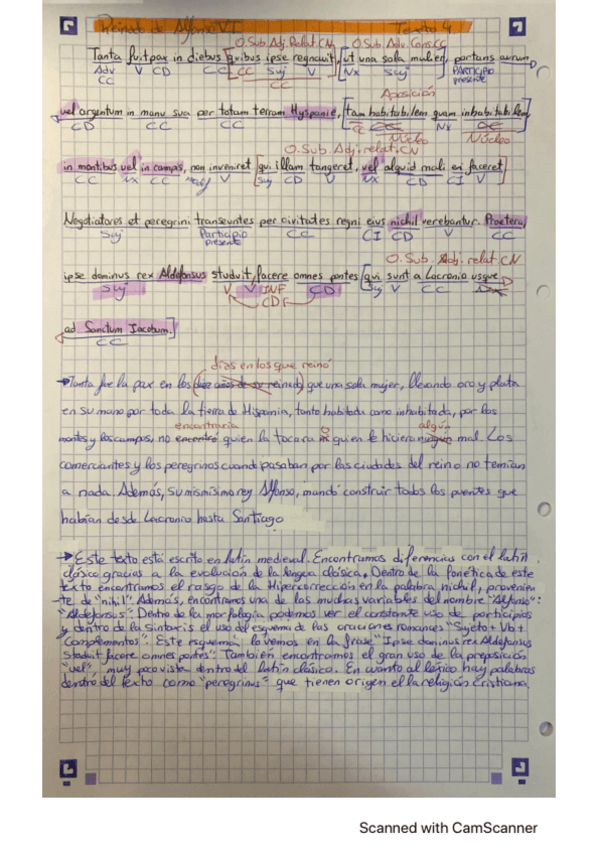 Reinado de Alfonso VI Texto 4
O.Sub.Adj.Relat.CN O.Sub.Adv.Cons.CC
Tanta fuit pax in diebus [quibus ipse regnauit], [ut una sola mulier, portans aurum
Adv V CD CC CC Suj V Nx Suj PARTICIPIO
CC presente
Aposición
vel argentum in manu sua per totam terram Hyspanie, [tam habitabilem quam inhabitabilem,
CD CC CC CC Nx
Núcleo Núcleo
O.Sub.Adj.relat.CN
in montibus vel in campos, non inveniret [qui illam tangeret, vel aliquid mali ei faceret]
CC Nx CC V Suj CD V Nx CD CI V
Negotiatores et peregrini transeuntes per civitates regni eius nichil verebantur. Praeterea,
Suj Participio CC CI CD V CC
presente
O.Sub.Adj.relat.CN
ipse dominus rex Aldefonsus studuit, facere omnes pontes [qui sunt a Lacronio usque
Suj V V INF CD Suj V CC
CD
ad Sanctum Iacobum.]
CC
días en los que reinó
→Tanta fue la pax en los (diez años de su reinado) que una sola mujer, llevando oro y plata
en su mano por toda la tierra de Hispania, tanto habitada como inhabitada, por los
encontraría o algún
montes y los campos, no encontró quien la tocara ni quien le hiciera ningún mal. Los
comerciantes y los peregrinos cuand pasaban por las ciudades del reino no temían
a nada. Además, su mismísimo rey Alfonso, mandó construir todos los puentes que
habían desde Lacronio hasta Santiago
→Este texto está escrito en latín medieval. Encontramos diferencias con el latín
clásico gracias a la evolución de la lengua clásica. Dentro de la fonética de este
texto encontramos el rasgo de la Hipercorrección en la palabra nichil, provenien
te de "nihil". Además, encontramos una de las muchas variables del nombre "Alfonso":
"Aldefonsus". Dentro de la morfología podemos ver el constante uso de participios
y dentro de la sintaxis el uso del esquema de las oraciones romances "Sujeto + Vb +
Complementos". Este esquema lo vemos en la frase "Ipse dominus rex Aldefonsus
studuit facere omnes pontes". También encontramos el gran uso de la preposición
"vel", muy poco vista dentro del latín clásico. En cuanto al léxico hay palabras
dentro del texto como "peregrinus" que tienen origen el la religión cristiana.
Scanned with CamScanner